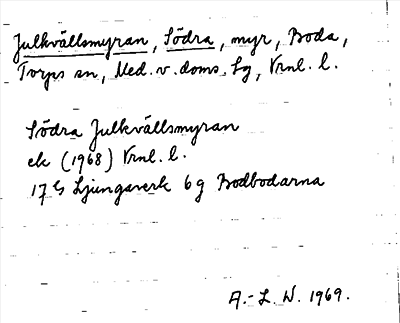 Julkvällsmyran, Södra, myr, Boda,
Torps sn, Med. v. doms. lg, Vrnl. l.
Södra Julkvällsmyran
ek (1968) Vrnl. l.
17 G Ljungaverk 6 g Bodbodarna
A.-L. W. 1969.